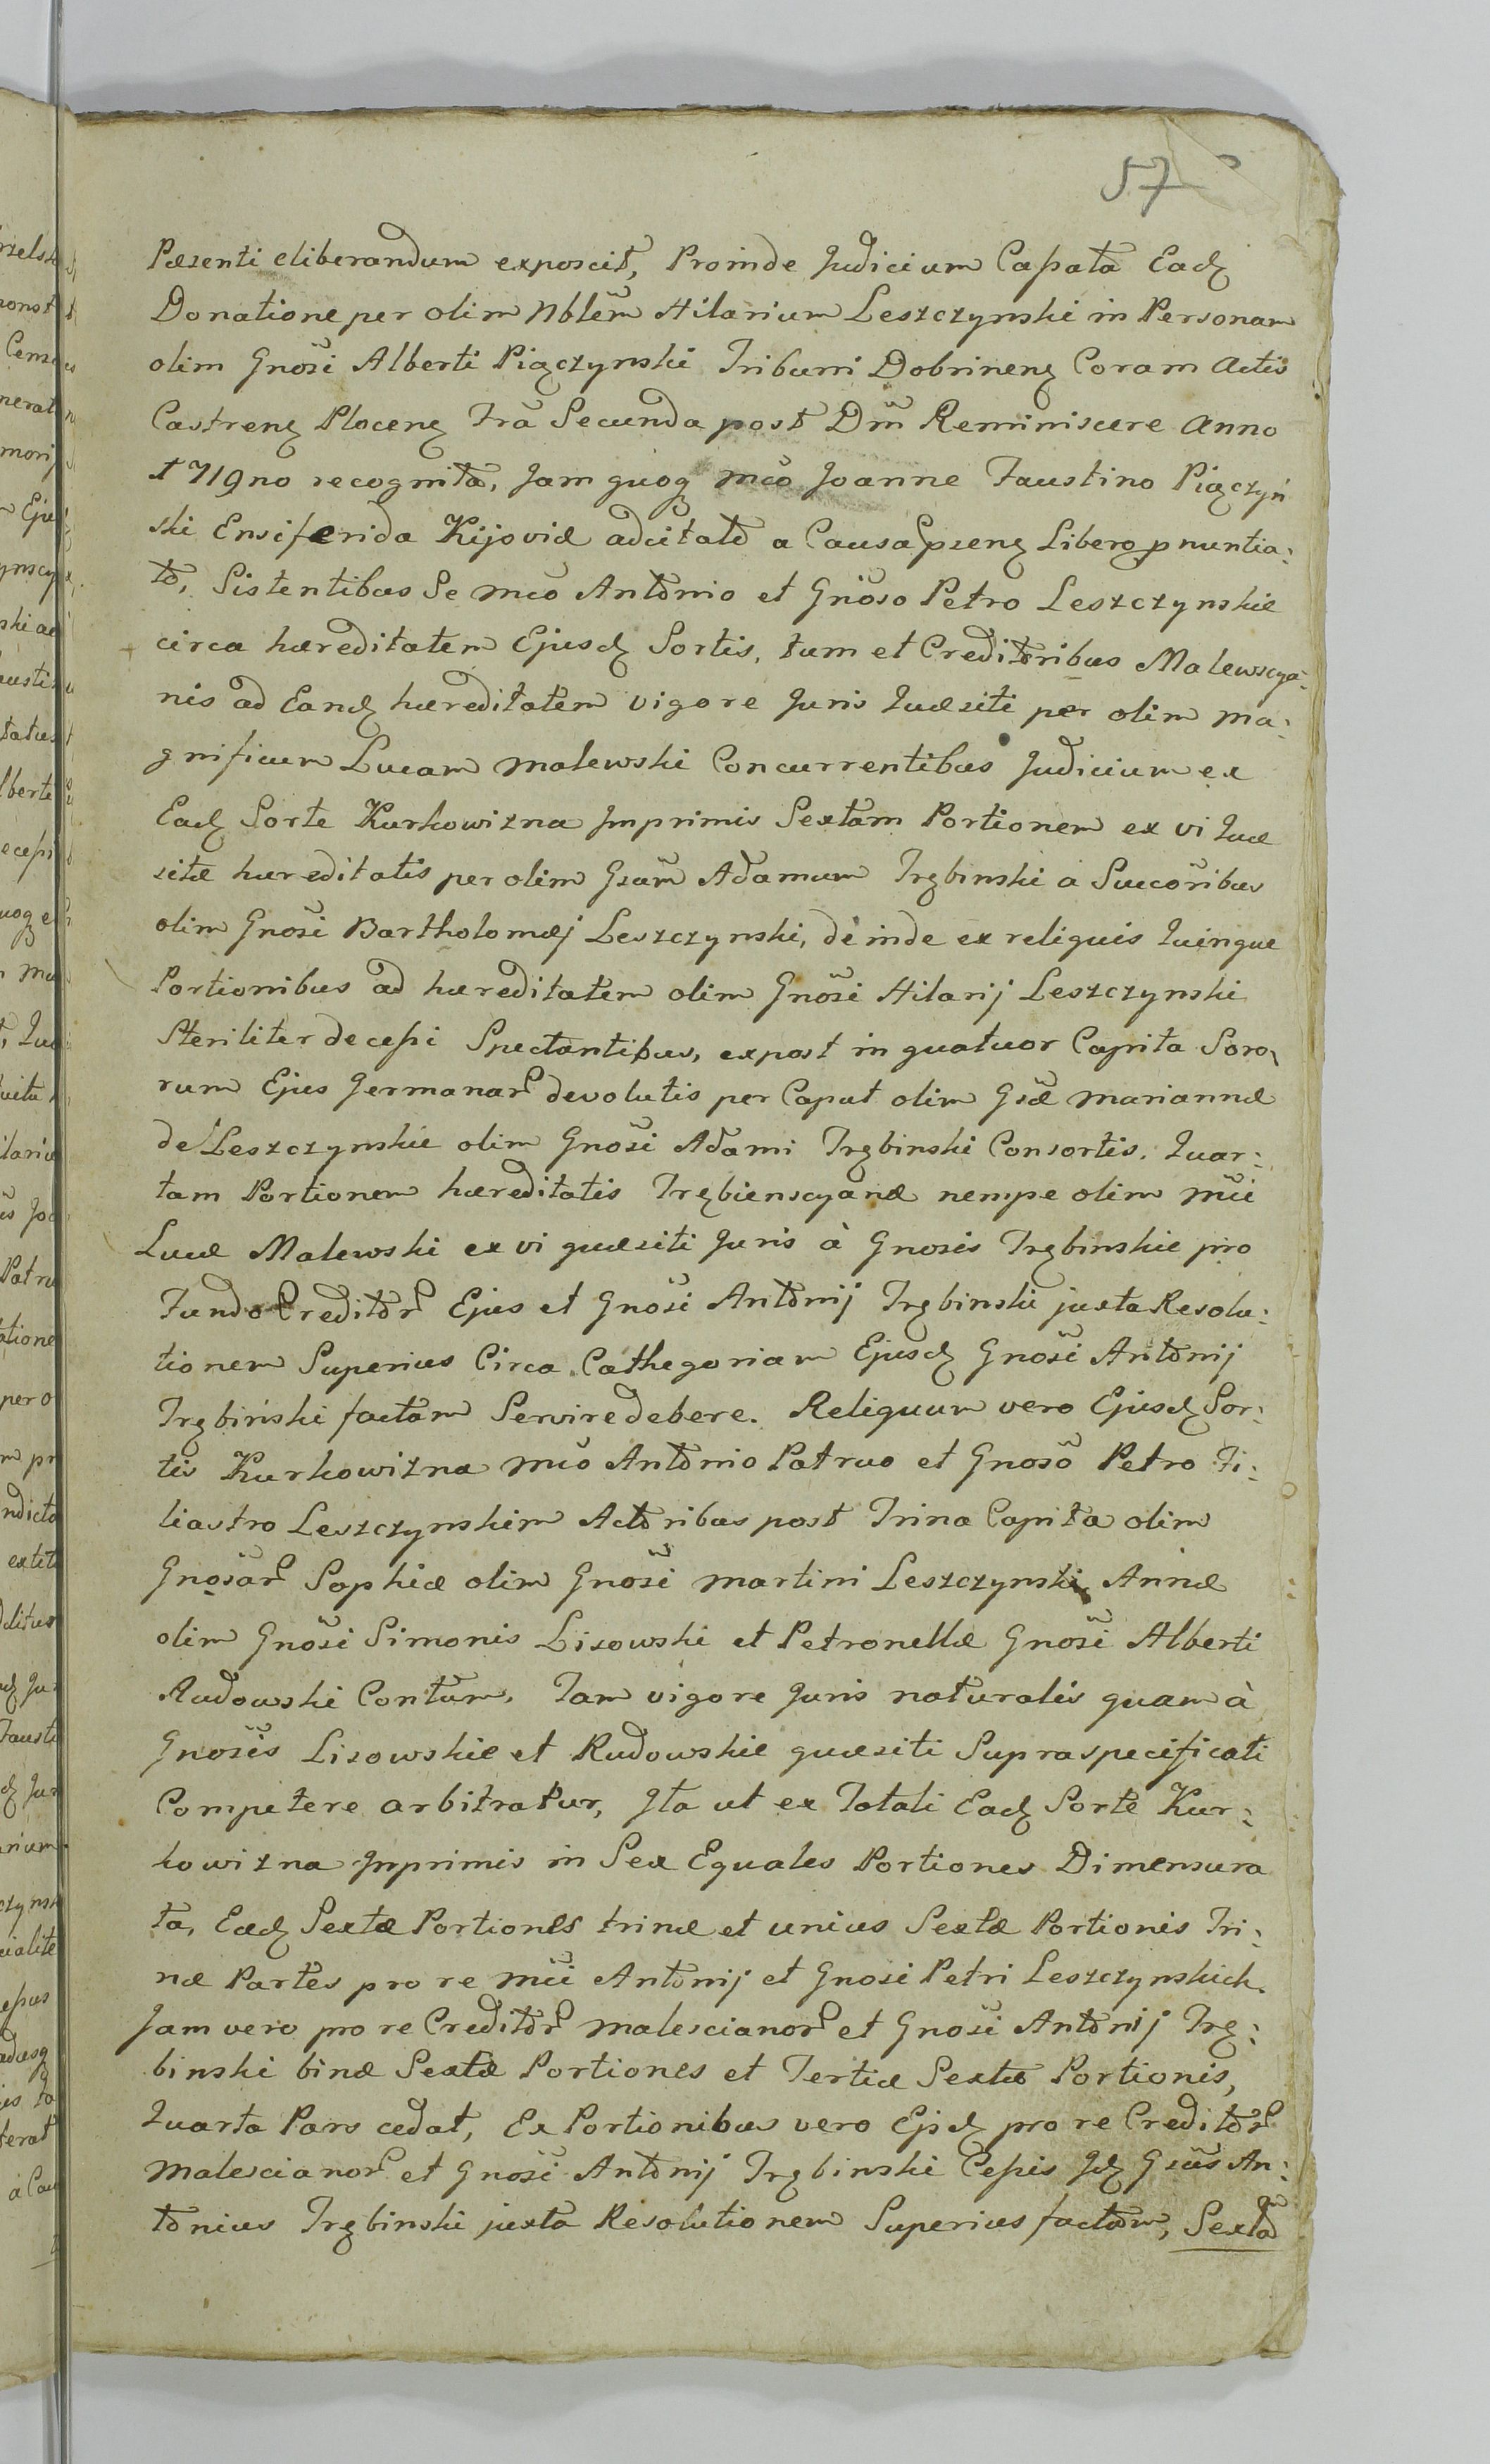 57
Præsenti eliberandum exposcit, Proinde Judicium Caßata Eadꝫ
Donatione per olim Nblem̃ Hilarium Leszczynski in Personam
olim Gnosi Alberti Piączynski Tribuni Dobrinenꝫ Coram Actis
Castrenꝫ Plocenꝫ Fra Secunda post Dm̃ Reminiscere Anno
1719no recognita, Jam quoqꝫ Mco Joanne Faustino Piączyń
ski Ensiferida Kijoviæ adcitato a Causa Pnsenꝫ Libero pnuntia:
to, Sistentibus Se Mco Antonio et Gnoso Petro Leszczynskie
circa hæreditatem Ejusdꝫ Sortis, tum et Creditoribus Malewscya:
nis ad Eandꝫ hæreditatem vigore Juris Quæsiti per olim Ma:
gnificum Lucam Malewski Concurrentibus Judicium ex
Eadꝫ Sorte Kurkowizna Imprimis Sextam Portionem ex vi Quæ
sitæ hæreditatis per olim Gsum̃ Adamum Trębinski a Succoribus
olim Gnosi Bartholomæj Leszczynski, deinde ex reliquis Quinque
Portionibus ad hæreditatem olim Gnosi Hilarij Leszczynski
Steriliter deceßi Spectantibus, expost in quatuor Capita Soro,
rum Ejus Germanar devolutis per Caput olim Gsæ Mariannæ
de Leszczynskie olim Gnosi Adami Trębinski Consortis, Quar:
tam Portionem hæreditatis Trębienscyanæ nempe olim Mci
Lucæ Malewski ex vi quæsiti Juris à Gnosis Trębinskie pro
Fundo Creditor Ejus et Gnosi Antonij Trębinski juxta Resolu:
tionem Superius Circa Cathegoriam Ejusdꝫ Gnosi Antonij
Trębiński factam Servire debere. Reliquum vero Ejusdꝫ Sor:
tis Kurkowizna Mco Antonio Patruo et Gnoso Petro Fi:
liastro Leszczynskim Actoribus post Trina Capita olim
Gnosar Sophiæ olim Gnosi Martini Leszczynski, Annæ
olim Gnosi Simonis Lisowski et Petronellæ Gnosi Alberti
Rudowski Contum, Tam vigore Juris naturalis quam à
Gnosis Lisowskie et Rudowskie quæsiti Supraspecificati
Competere arbitratur, Ita ut ex Totali Eadꝫ Sorte Kur:
kowizna Inprimis in Sex Equales Portiones Dimensura
ta, Eædꝫ Sextæ Portiones trinæ et unius Sextæ Portionis Tri:
næ Partes pro re Mci Antonij et Gnosi Petri Leszczynskich.
Jam vero pro re Creditor Malescianor et Gnosi Antonij Trę:
binski binæ Sextæ Portiones et Tertiæ Sextæ Portionis,
Quarta Pars cedat, Ex Portionibus vero Ejsdꝫ pro re Creditor
Malescianor et Gnosi Antonij Trębinski Ceßis Idꝫ Gsus An:
tonius Trębinski juxta Resolutionem Superius factam, Sextam